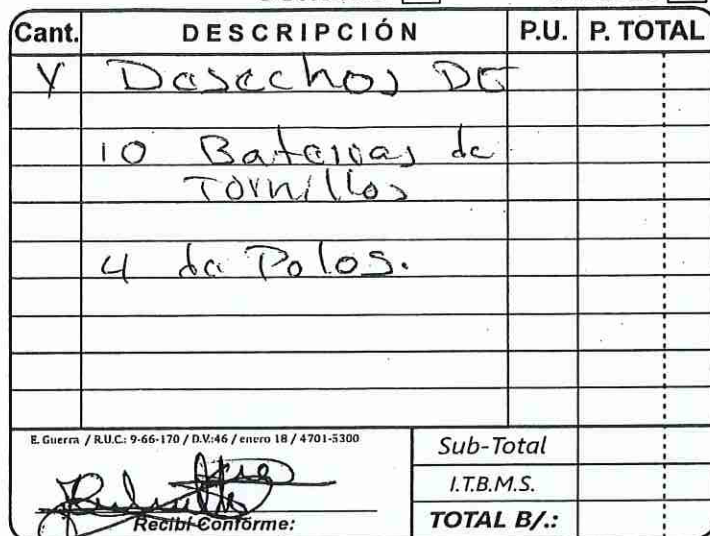 Cant. DESCRIPCIÓN P.U. P. TOTAL
Y Desechos DE
10 Baterias de
Tornillos
4 de Polos.
E. Guerra / R.U.C.: 9-66-170 / D.V.:46 / enero 18 / 4701-5300
Sub-Total
I.T.B.M.S.
Recibí Conforme:
TOTAL B/.: